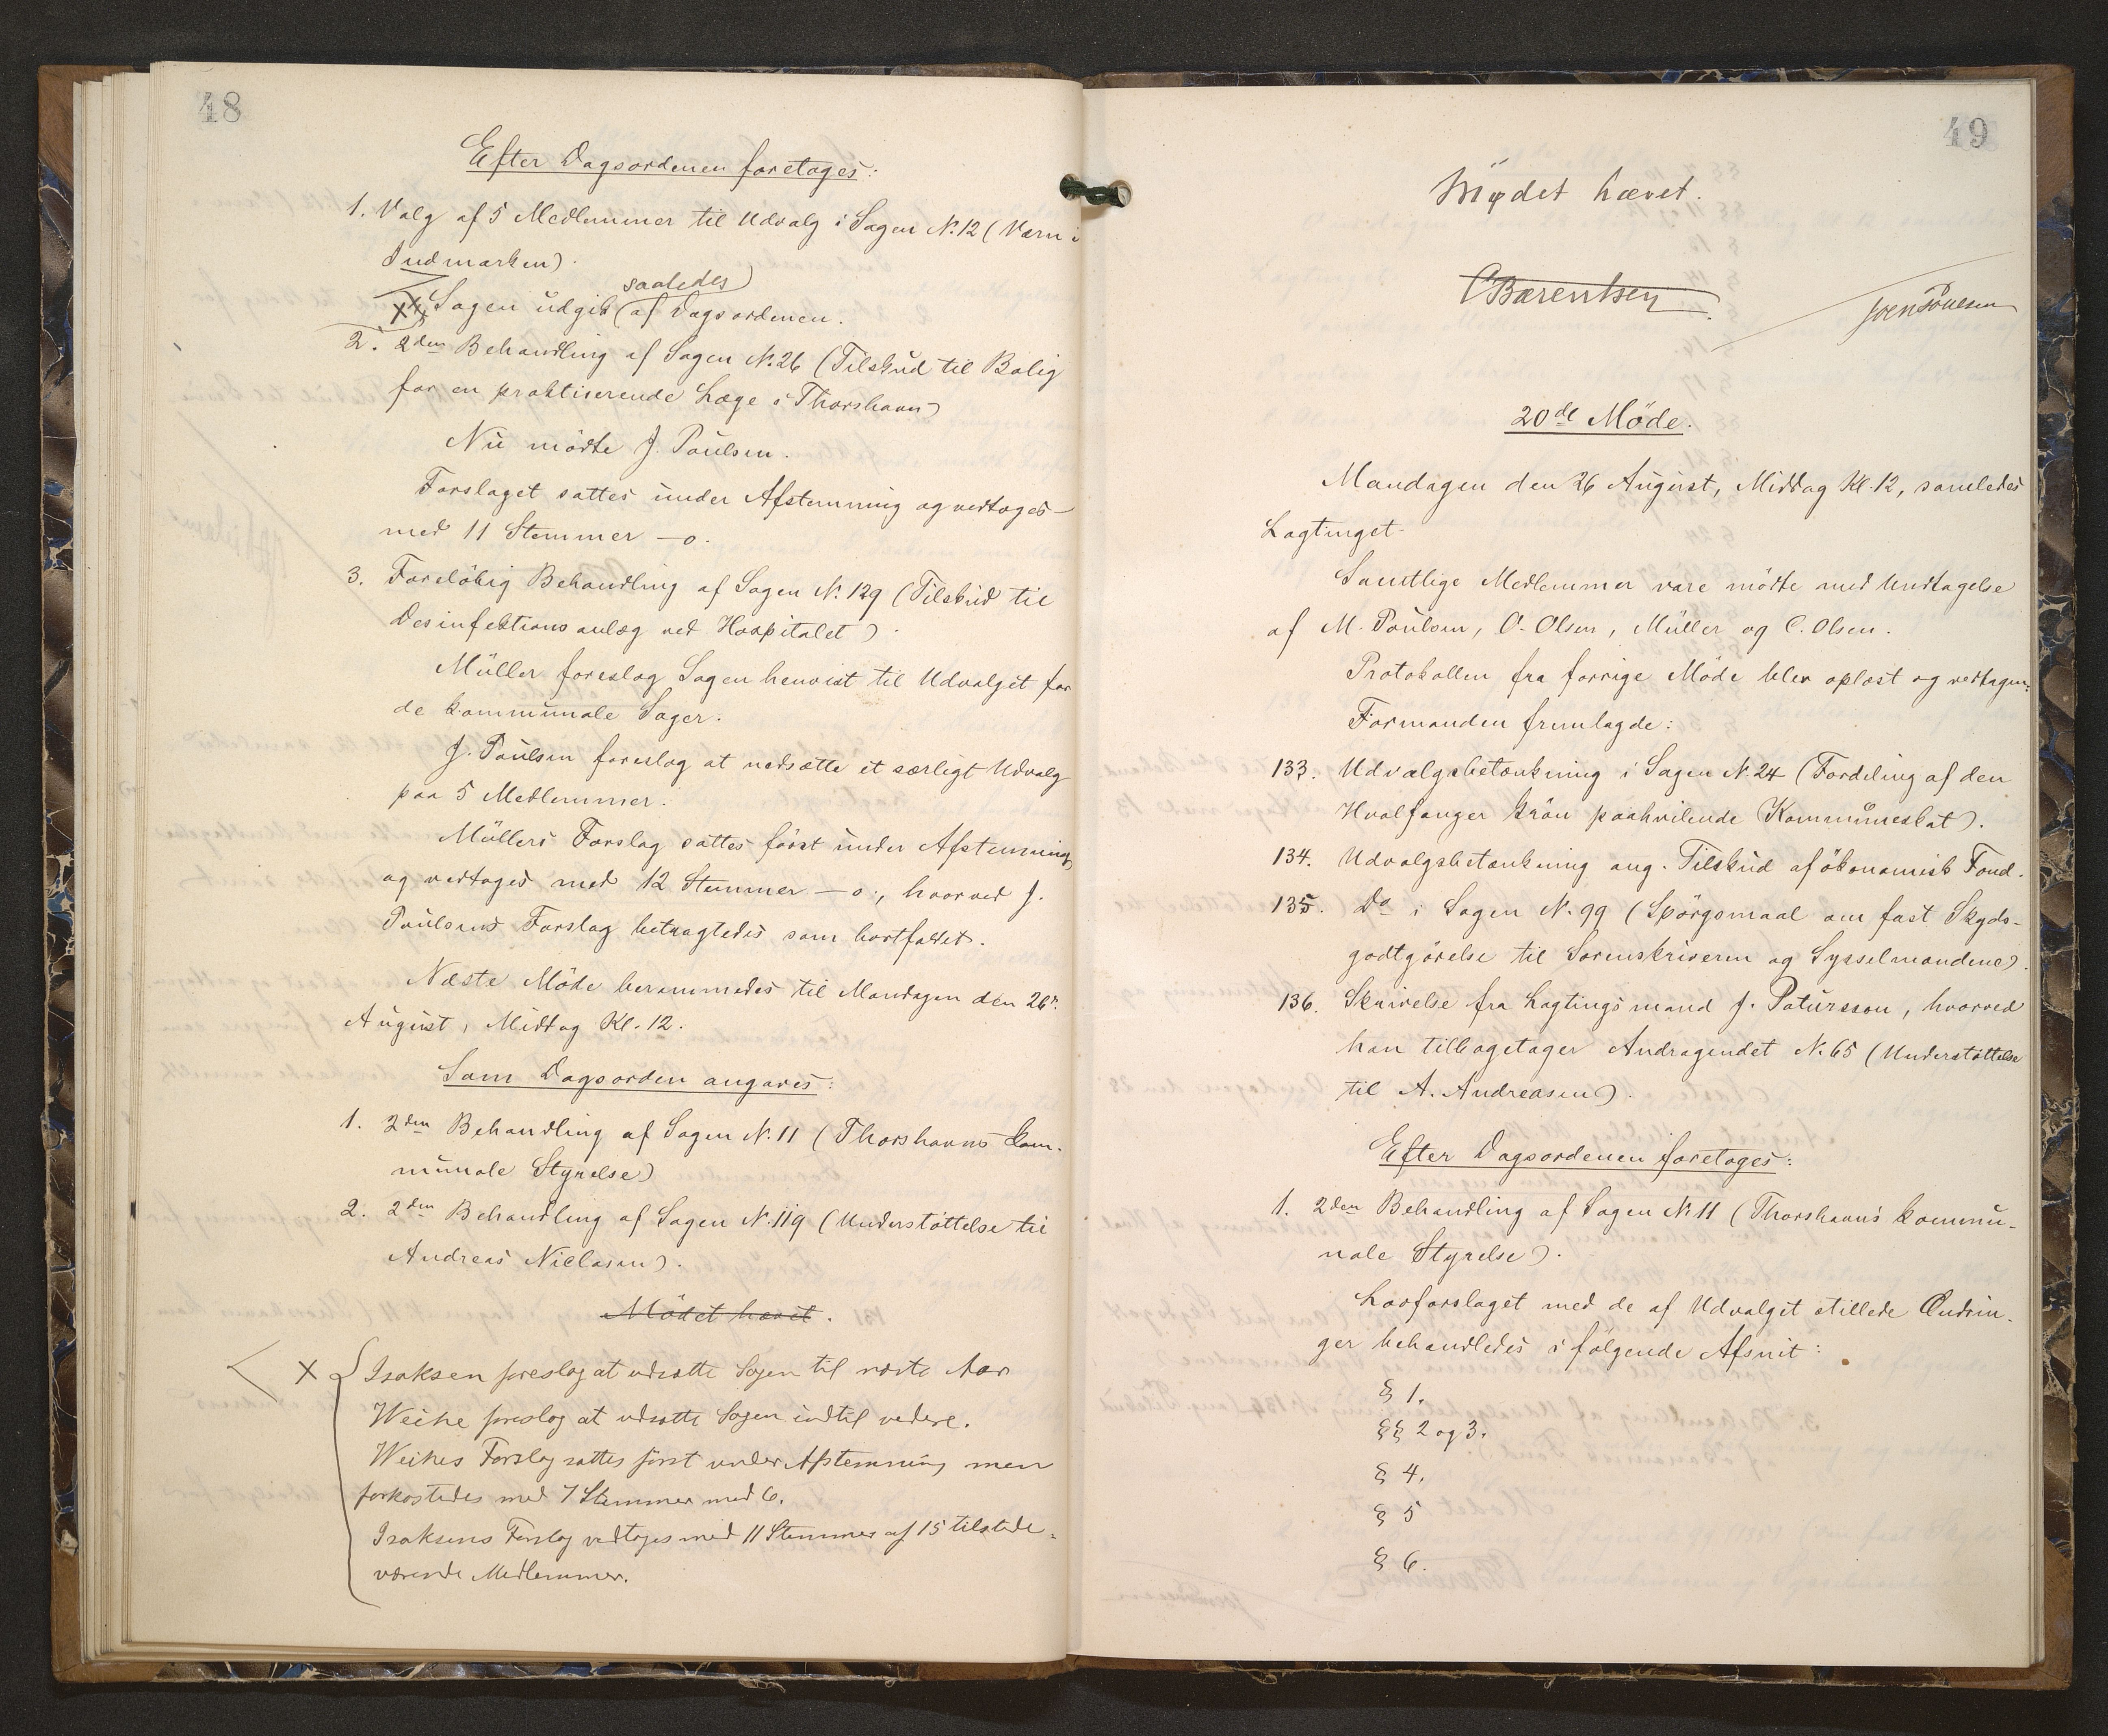 48
Efter Dagsordenen foretoges:
1. Valg af 5 Medlemmer til Udvalg i Sagen N. 12 (Værn i
Indmarken).
saaledes
XX Sagen udgik af Dagsordenen.
2. 2den Behandling af Sagen N. 26 (Tilskud til Bolig
for en praktiserende Læge i Thorshavn)
Nu mödte J. Poulsen.
Forslaget sattes under Afstemning og vedtoges
med 11 Stemmer – o.
3. Forelöbig Behandling af Sagen N. 129 (Tilskud til
Desinfektionsanlæg ved Hospitalet).
Müller foreslog Sagen henvist til Udvalget for
de kommunale Sager.
J. Poulsen foreslog at nedsætte et særligt Udvalg
paa 5 Medlemmer.
Müllers Forslag sattes först under Afstemning
og vedtoges med 12 Stemmer – o., hvorved J.
Poulsens Forslag betragtedes som bortfaldet.
Næste Möde berammedes til Mandagen den 26de
August, Middag Kl. 12.
Som Dagsorden angaves:
1. 2den Behandling af Sagen N. 11 (Thorshavns kom-
munale Styrelse)
2. 2den Behandling af Sagen N. 119 (Understöttelse til
Andreas Niclasen).
Mödet hævet.
X Isaksen foreslog at udsætte Sagen til næste Aar
Weihe foreslog at udsætte Sagen indtil videre.
Weihes Forslag sattes först under Afstemning men
forkastedes med 7 Stemmer mod 6.
Isaksens Forslag vedtoges med 11 Stemmer af 15 tilstede-
værende Medlemmer.
49
Mødet hævet.
CBærentsen
Joen Poulsen
20de Möde.
Mandagen den 26 August, Middag Kl. 12, samledes
Lagtinget.
Samtlige Medlemmer vare mödte med Undtagelse
af M. Poulsen, O. Olsen, Müller og C. Olsen.
Protokollen fra forrige Möde blev oplæst og vedtagen.
Formanden fremlagde:
133. Udvalgsbetænkning i Sagen N. 24 (Fordeling af den
Hvalfanger kröu paahvilende Kommuneskat).
134. Udvalgsbetænkning ang. Tilskud af ökonomisk Fond.
135. Do i Sagen N. 99 (Spörgsmaal om fast Skyds-
godtgörelse til Sorenskriveren og Sysselmændene).
136. Skrivelse fra Lagtingsmand J. Patursson, hvorved
han tilbagetager Andragendet N. 65 (Understöttelse
til A. Andreasen).
Efter Dagsordenen foretoges:
1. 2den Behandling af Sagen N. 11 (Thorshavns kommu-
nale Styrelse).
Lovforslaget med de af Udvalget stillede Ændrin-
ger behandledes i fölgende Afsnit:
§ 1.
§§ 2 og 3.
§ 4.
§ 5
§ 6.